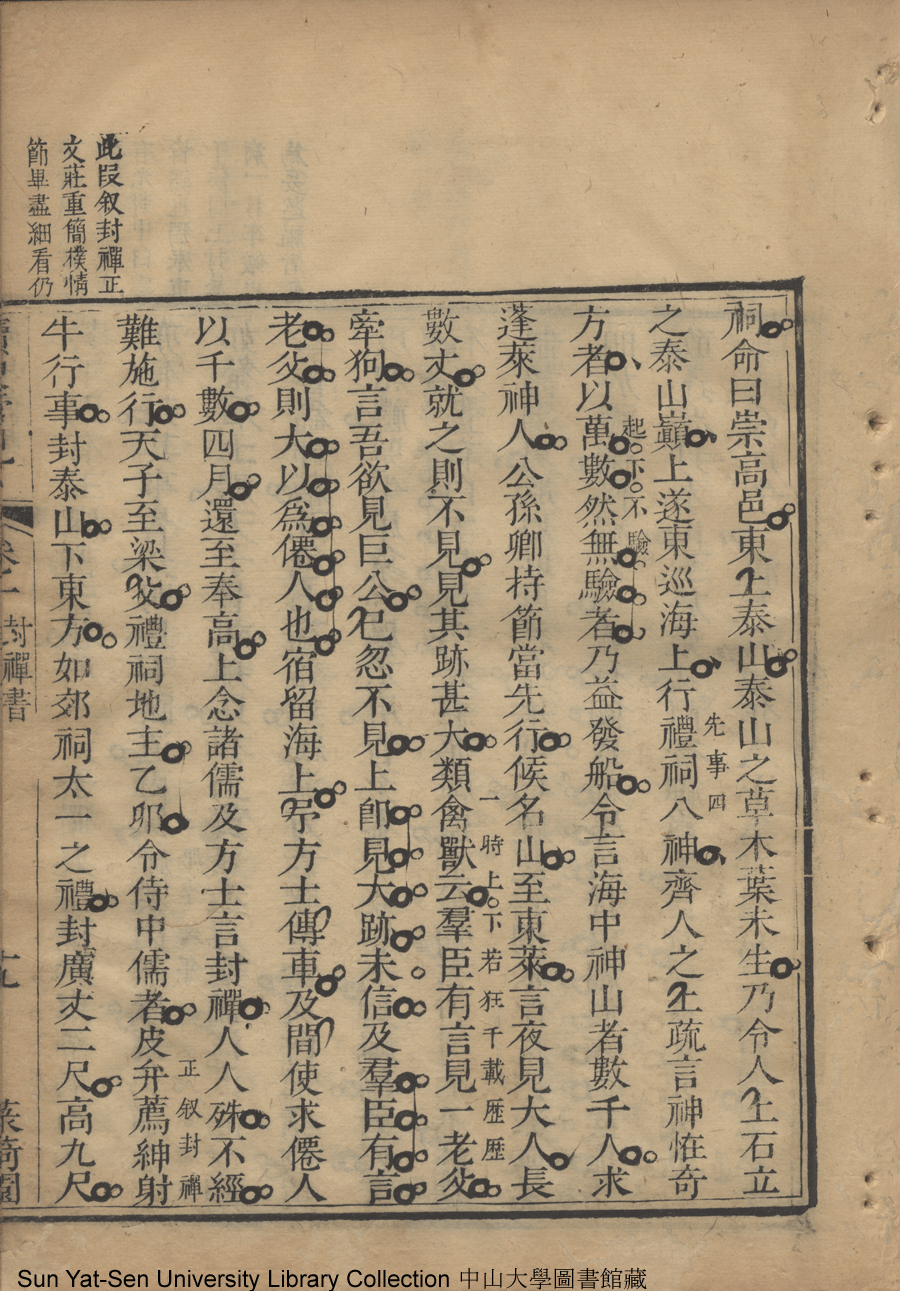 此段叙封禪正
文莊重簡樸情
節畢盡細看仍
祠命曰崇高邑東上泰山泰山之草木葉未生乃令人上石立
之泰山巔上遂東巡海上行禮祠八神齊人之上疏言神恠奇
先事四
方者以萬數然無驗者乃益發船令言海中神山者數千人求
起下不驗
蓬萊神人公孫卿持節當先行候名山至東萊言夜見大人長
數丈就之則不見見其跡甚大類禽獸云羣臣有言見一老父
一時上下若狂千載歷歷
牽狗言吾欲見巨公已忽不見上卽見大跡未信及羣臣有言
老父則大以爲僊人也宿留海上予方士傳車及間使求僊人
以千數四月還至奉高上念諸儒及方士言封禪人人殊不經
難施行天子至梁父禮祠地主乙卯令侍中儒者皮弁薦紳射
正叙封禪
牛行事封泰山下東方如郊祠太一之禮封廣丈二尺高九尺
封禪書